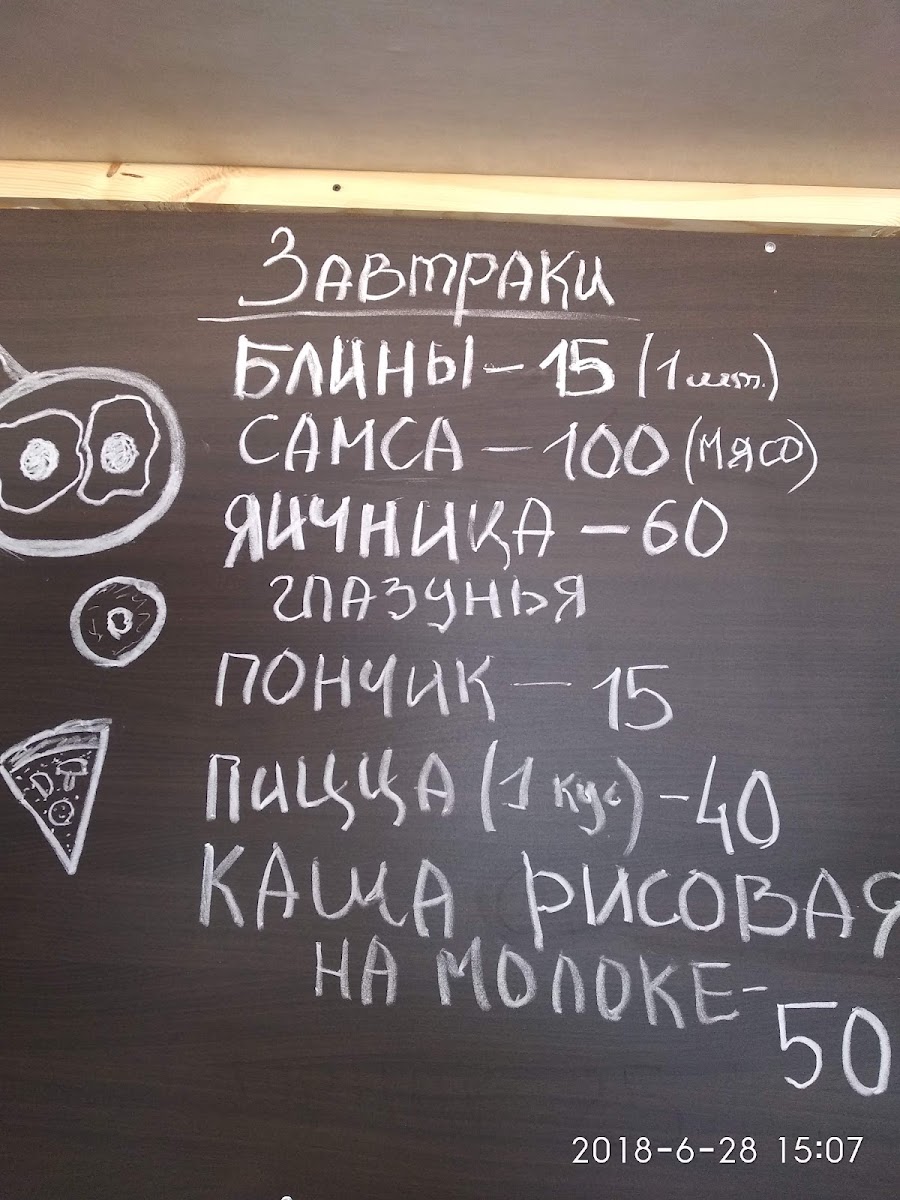 Завтраки
БЛИНЫ - 15 (1 шт.)
САМСА - 100 (МЯСО)
ЯИЧНИЦА - 60
ГЛАЗУНЬЯ
ПОНЧИК - 15
ПИЦЦА (1 кус) - 40
КАША РИСОВАЯ
НА МОЛОКЕ-
50
2018-6-28 15:07